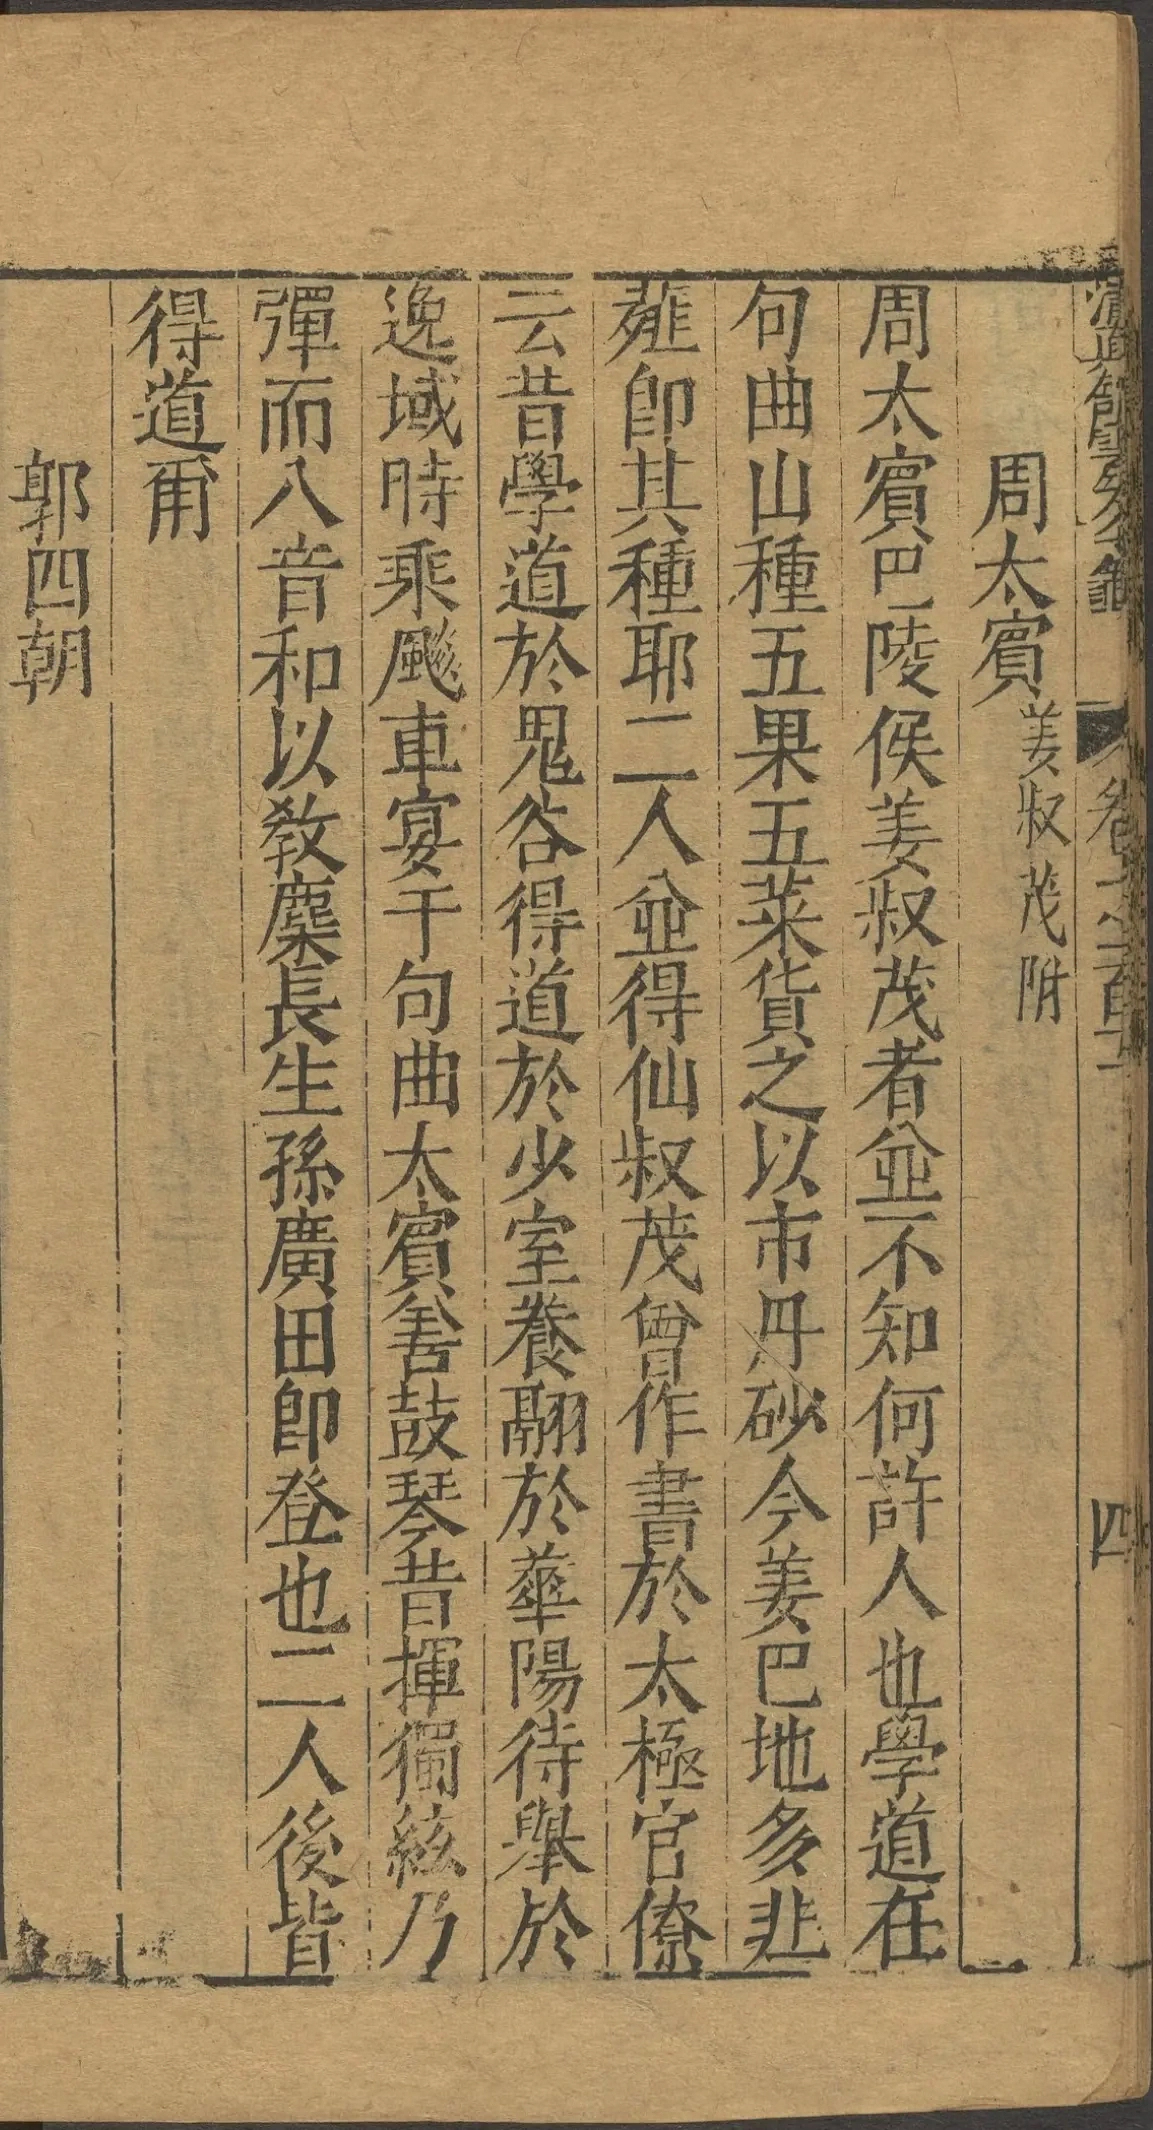 周太賓姜叔茂附
周太賓巴陵侯姜叔茂者並不知何許人也學道在
句曲山種五果五菜貨之以市丹砂今姜巴地多韭
薤即其種耶二人並得仙叔茂曾作書於太極官僚
云昔學道於鬼谷得道於少室養翮於華陽待舉於
逸域時乘飈車宴于句曲太賓善鼓琴昔揮獨絃乃
彈而八音和以教麋長生孫廣田即登也二人後皆
得道爾
郭四朝
四